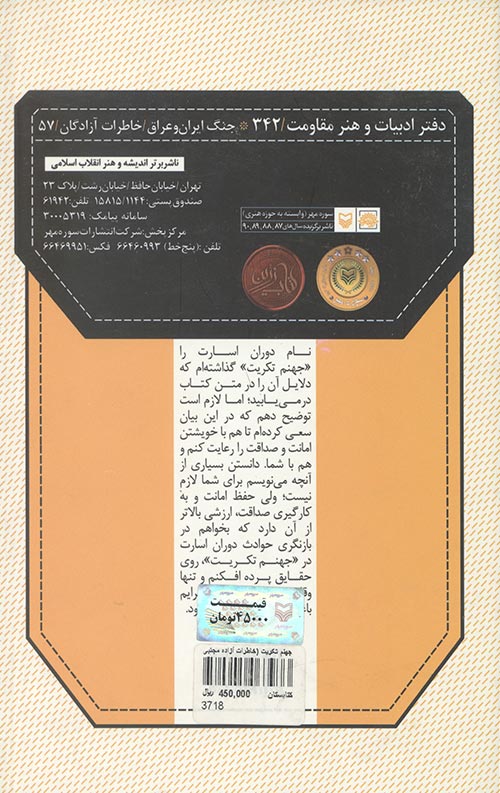 دفتر ادبیات و هنر مقاومت/۳۴۲ * جنگ ایران‌وعراق/خاطرات آزادگان/۵۷
ناشر برتر اندیشه و هنر انقلاب اسلامی
تهران/خیابان‌حافظ/خیابان‌رشت/پلاک ۲۳
صندوق‌پستی: ۱۵۸۱۵/۱۱۴۴ تلفن: ۶۱۹۴۲
سامانه پیامک: ۳۰۰۰۵۳۱۹
مرکز پخش: شرکت‌انتشارات‌سوره‌مهر
تلفن: (پنج‌خط) ۶۶۴۶۰۹۹۳ فکس: ۶۶۴۶۹۹۵۱
سوره مهر (وابسته به حوزه هنری)
ناشر برگزیده سال‌های ۸۷، ۸۸، ۸۹، ۹۰
نام دوران اسارت را
«جهنم تکریت» گذاشته‌ام که
دلایل آن را در متن کتاب
درمی‌یابید؛ اما لازم است
توضیح دهم که در این بیان
سعی کرده‌ام تا هم با خویشتن
امانت و صداقت را رعایت کنم و
هم با شما. دانستن بسیاری از
آنچه می‌نویسم برای شما لازم
نیست؛ ولی حفظ امانت و به
کارگیری صداقت، ارزشی بالاتر
از آن دارد که بخواهم در
بازنگری حوادث دوران اسارت
در «جهنم تکریت»، روی
حقایق پرده افکنم و تنها
قیمت
۴۵۰۰۰تومان
جهنم تکریت (خاطرات آزاده مجتبی
کتابستان 450,000 ریال
3718